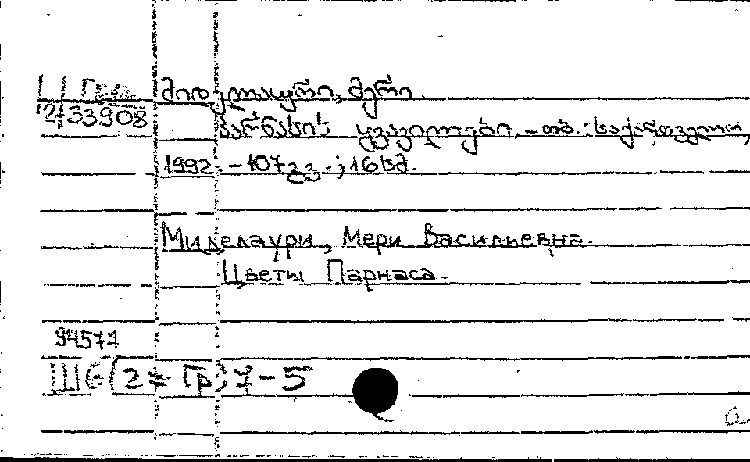 მიდელაური, მერი.
2/33908
პარნასის ყვავილები. – თბ.: საქართველო,
1992. – 107 გვ. ; 16 სმ.
Миделаури, Мери Васильевна.
Цветы Парнаса.
94577
Ш6(2=Гр)7-5